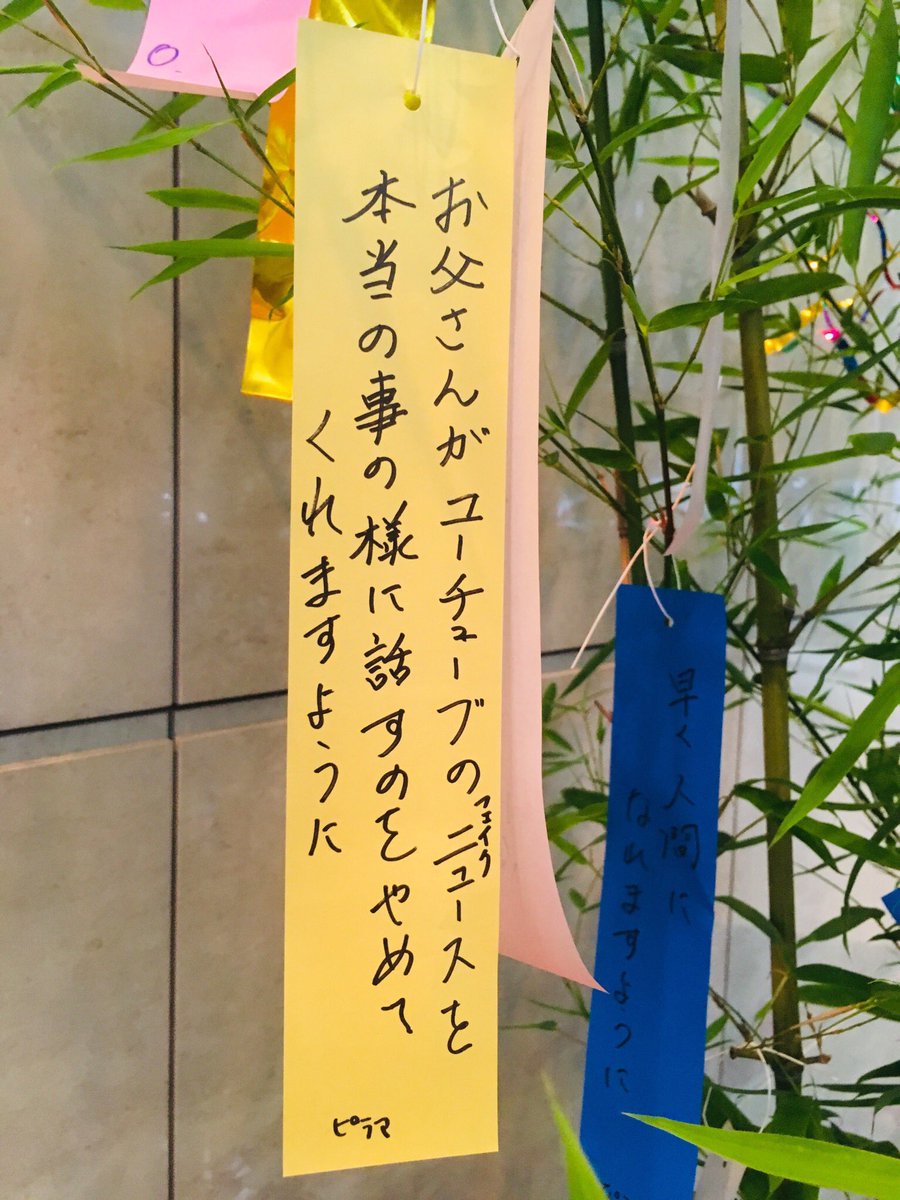 お父さんがユーチューブのニュースを
フェイク
本当の事の様に話すのをやめて
くれますように
ピラマ
早く人間に
なれますように